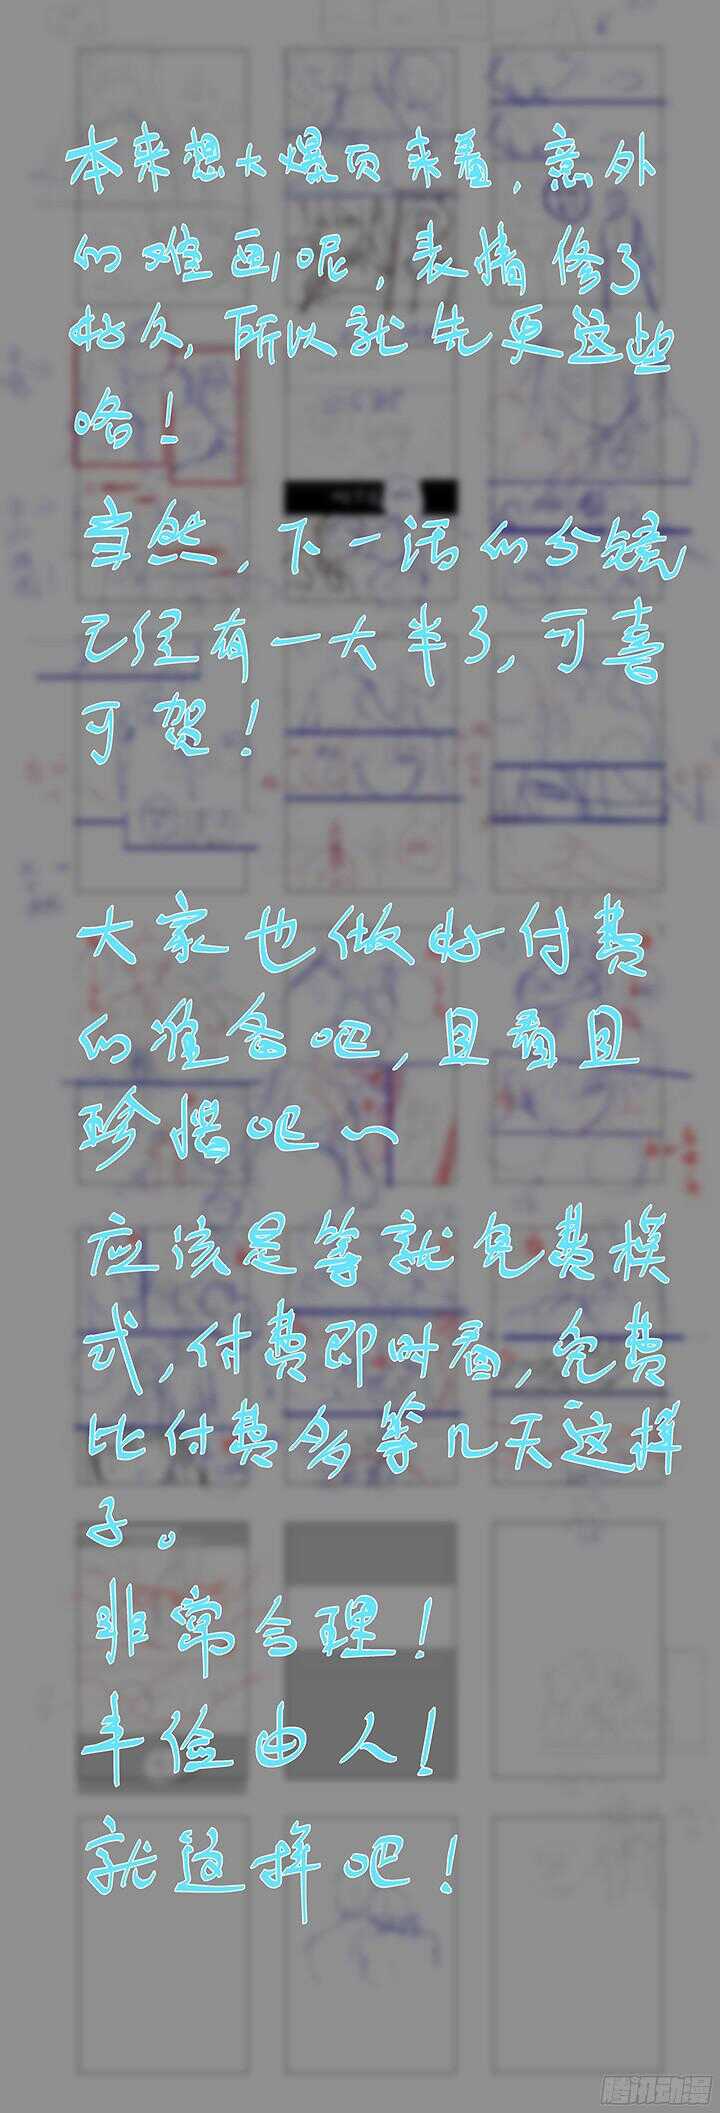 本来想大爆页来着,意外
的难画呢,表情修了
好久,所以就先更这些
咯!
当然,下一话的分镜
已经有一大半了,可喜
可贺!
大家也做好付费
的准备吧,且看且
珍惜吧~
应该是等就免费模
式,付费即时看,免费
比付费多等几天这样
子。
非常合理!
丰俭由人!
就这样吧!
腾讯动漫